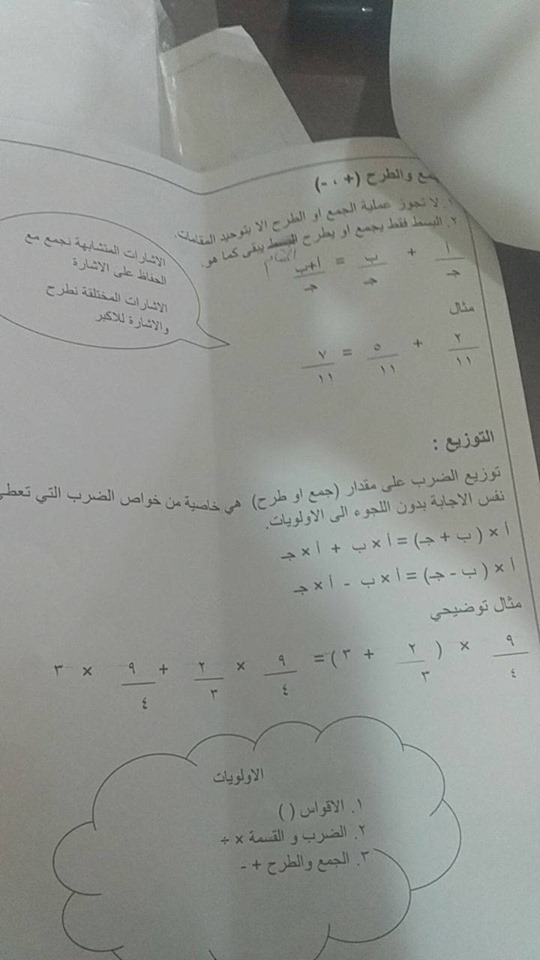 والطرح (+ ، -)
١. لا تجوز عملية الجمع او الطرح الا بتوحيد المقامات.
٢. البسط فقط يجمع او يطرح البسط يبقى كما هو.
المقام
أ/جـ + ب/جـ = أ+ب/جـ
مثال
٢/١١ + ٥/١١ = ٧/١١
الاشارات المتشابهة نجمع مع
الحفاظ على الاشارة
الاشارات المختلفة نطرح
والاشارة للاكبر
التوزيع :
توزيع الضرب على مقدار (جمع او طرح) هي خاصية من خواص الضرب التي تعطي
نفس الاجابة بدون اللجوء الى الاولويات.
أ × ( ب + جـ) = أ × ب + أ × جـ
أ × ( ب - جـ) = أ × ب - أ × جـ
مثال توضيحي
٩/٤ × ( ٢/٣ + ٣) = ٩/٤ × ٢/٣ + ٩/٤ × ٣
الاولويات
١. الاقواس ( )
٢. الضرب و القسمة × ÷
٣. الجمع والطرح + -